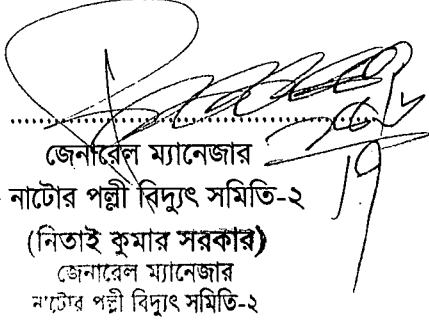 জেনারেল ম্যানেজার
নাটোর পল্লী বিদ্যুৎ সমিতি-২
(নিতাই কুমার সরকার)
জেনারেল ম্যানেজার
নাটোর পল্লী বিদ্যুৎ সমিতি-২